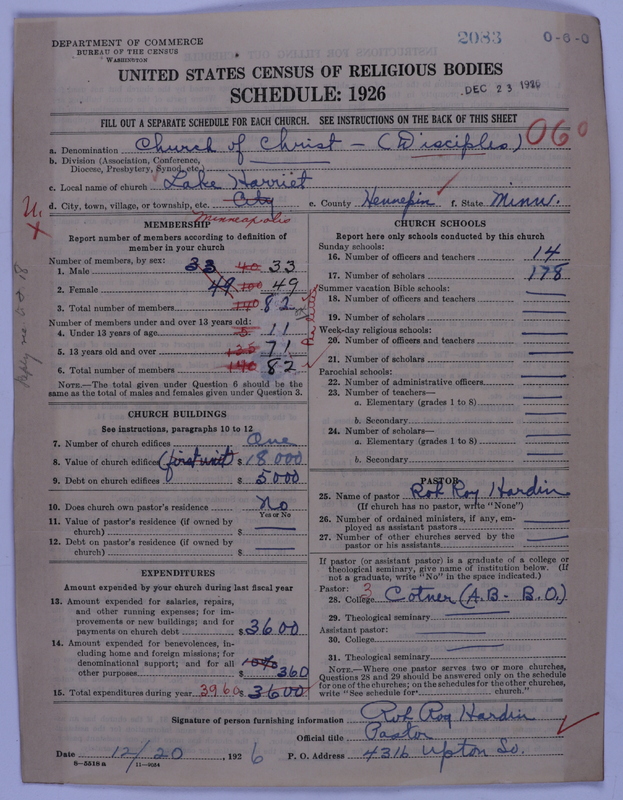 DEPARTMENT OF COMMERCE
BUREAU OF THE CENSUS
WASHINGTON
2083 0-6-0
UNITED STATES CENSUS OF RELIGIOUS BODIES
SCHEDULE: 1926
DEC 23 1926
FILL OUT A SEPARATE SCHEDULE FOR EACH CHURCH. SEE INSTRUCTIONS ON THE BACK OF THIS SHEET
060
a. Denomination Church of Christ - (Disciples)
b. Division (Association, Conference,
Diocese, Presbytery, Synod, etc.)
c. Local name of church Lake Harriet
d. City, town, village, or township, etc. City e. County Hennepin f. State Minn.
Minneapolis
MEMBERSHIP
Report number of members according to definition of
member in your church
Number of members, by sex:
1. Male 33 40 33
2. Female 49 100 49
3. Total number of members 140 82
Number of members under and over 13 years old:
4. Under 13 years of age 5 11
5. 13 years old and over 135 71
6. Total number of members 140 82
NOTE.—The total given under Question 6 should be the
same as the total of males and females given under Question 3.
CHURCH BUILDINGS
See instructions, paragraphs 10 to 12
7. Number of church edifices One
8. Value of church edifices (first unit) $18 000
9. Debt on church edifices $5000
10. Does church own pastor's residence No
Yes or No
11. Value of pastor's residence (if owned by
church) $
12. Debt on pastor's residence (if owned by
church) $
EXPENDITURES
Amount expended by your church during last fiscal year
13. Amount expended for salaries, repairs,
and other running expenses; for im-
provements or new buildings; and for
payments on church debt $3600
14. Amount expended for benevolences, in-
cluding home and foreign missions; for
denominational support; and for all
other purposes $ 10% 360
15. Total expenditures during year 3960 $3600
CHURCH SCHOOLS
Report here only schools conducted by this church
Sunday schools:
16. Number of officers and teachers 14
17. Number of scholars 178
Summer vacation Bible schools:
18. Number of officers and teachers
19. Number of scholars
Week-day religious schools:
20. Number of officers and teachers
21. Number of scholars
Parochial schools:
22. Number of administrative officers
23. Number of teachers—
a. Elementary (grades 1 to 8)
b. Secondary
24. Number of scholars—
a. Elementary (grades 1 to 8)
b. Secondary
PASTOR
25. Name of pastor Rob Roy Hardin
(If church has no pastor, write "None")
26. Number of ordained ministers, if any, em-
ployed as assistant pastors
27. Number of other churches served by the
pastor or his assistants
If pastor (or assistant pastor) is a graduate of a college or
theological seminary, give name of institution below. (If
not a graduate, write "No" in the space indicated.)
Pastor: 3
28. College Cotner (A.B. - B.D.)
29. Theological seminary
Assistant pastor:
30. College
31. Theological seminary
NOTE.—Where one pastor serves two or more churches,
Questions 28 and 29 should be answered only on the schedule
for one of the churches; on the schedules for the other churches,
write "See schedule for church."
Signature of person furnishing information Rob Roy Hardin
Official title Pastor
Date 12/20, 1926 P. O. Address 4316 Upton So.
8—5518 a 11—9054